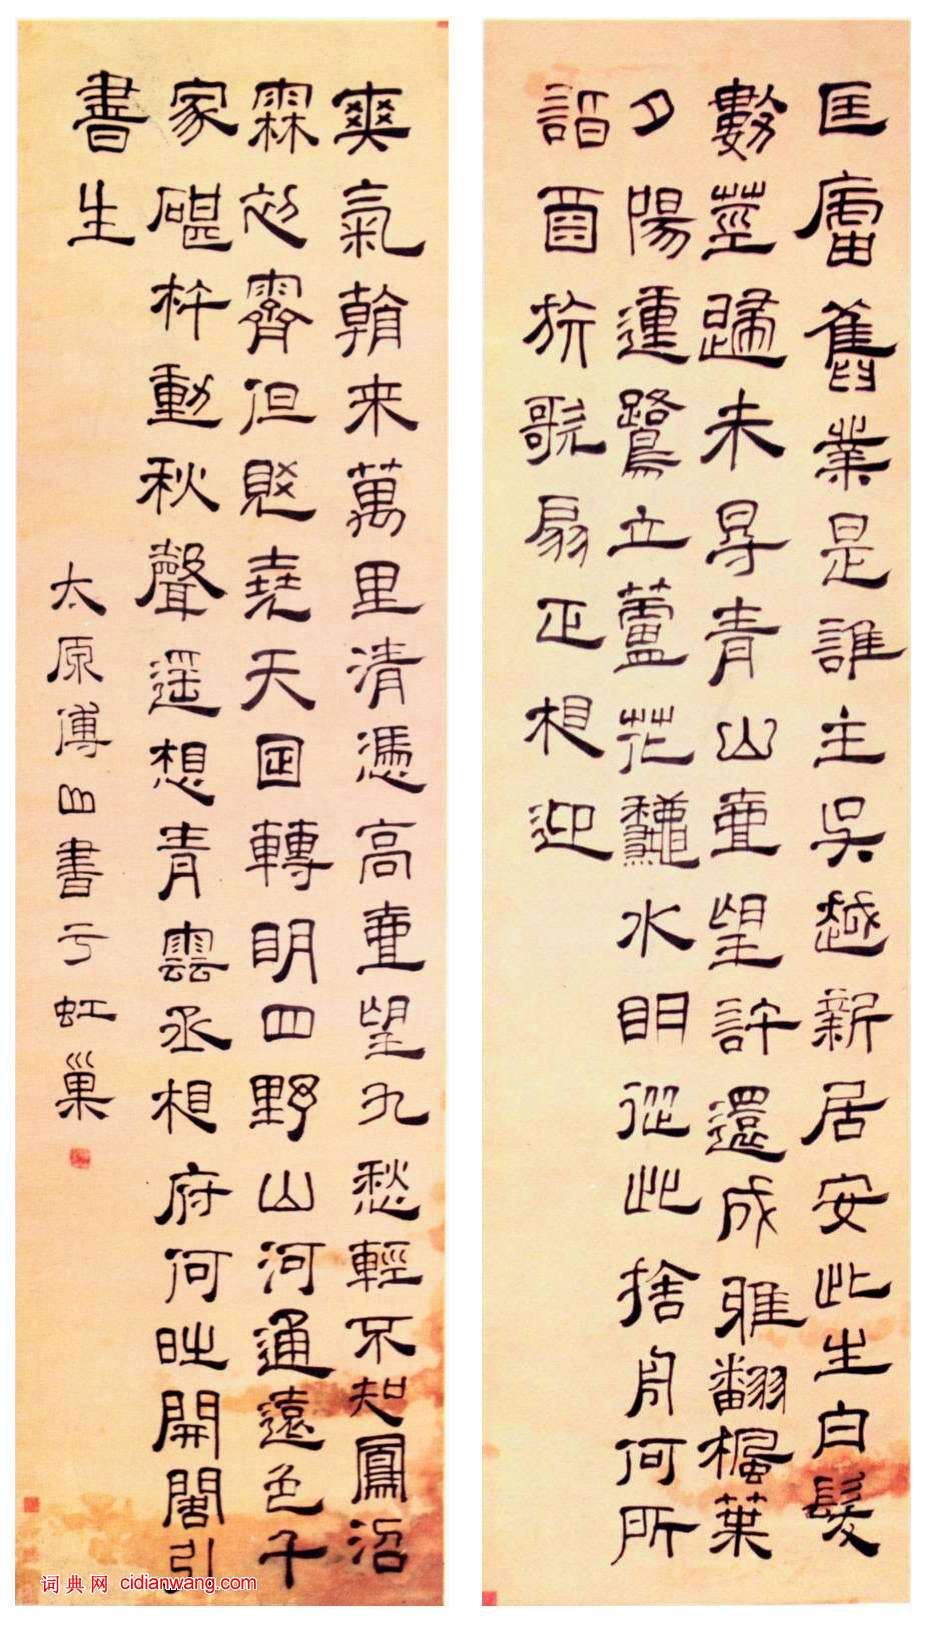 匡廬舊業是誰主吳越新居安此生白髮
數莖歸未㝵青山壹望許還成雅翻楓葉
夕陽運鷺立蘆花龝水明從此捨舟何所
詣酉旂歌扇正相迎
爽氣朝来萬里清憑高壹望九愁輕不知鳳沼
霖初霽但覺堯天囸轉明四野山河通遠色千
家碪杵動秋聲遥想青雲丞相府何時開閤引
書生
太原傅山書亏虹巢
词典网 cidianwang.com